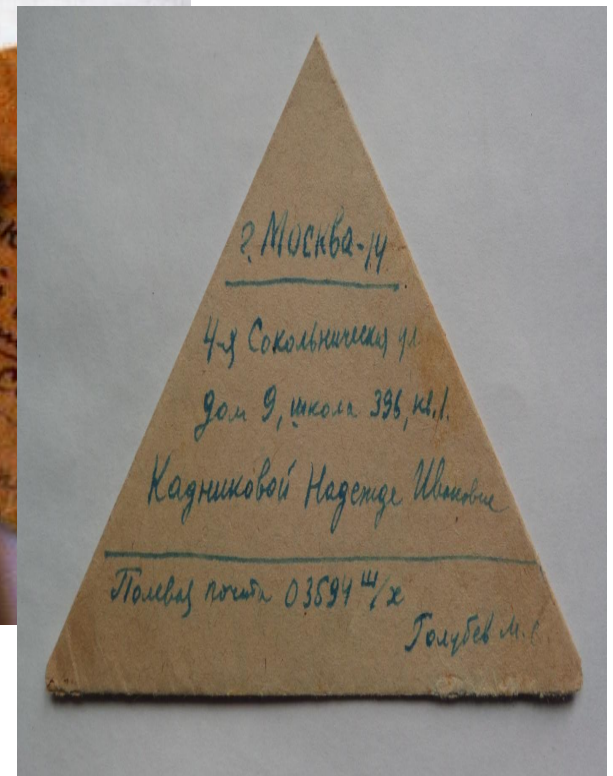 г. Москва-14
4-я Сокольническая ул
дом 9, школа 396, кв. 1.
Кадниковой Надежде Ивановне
Полевая почта 03594 ш/х
Голубев М.